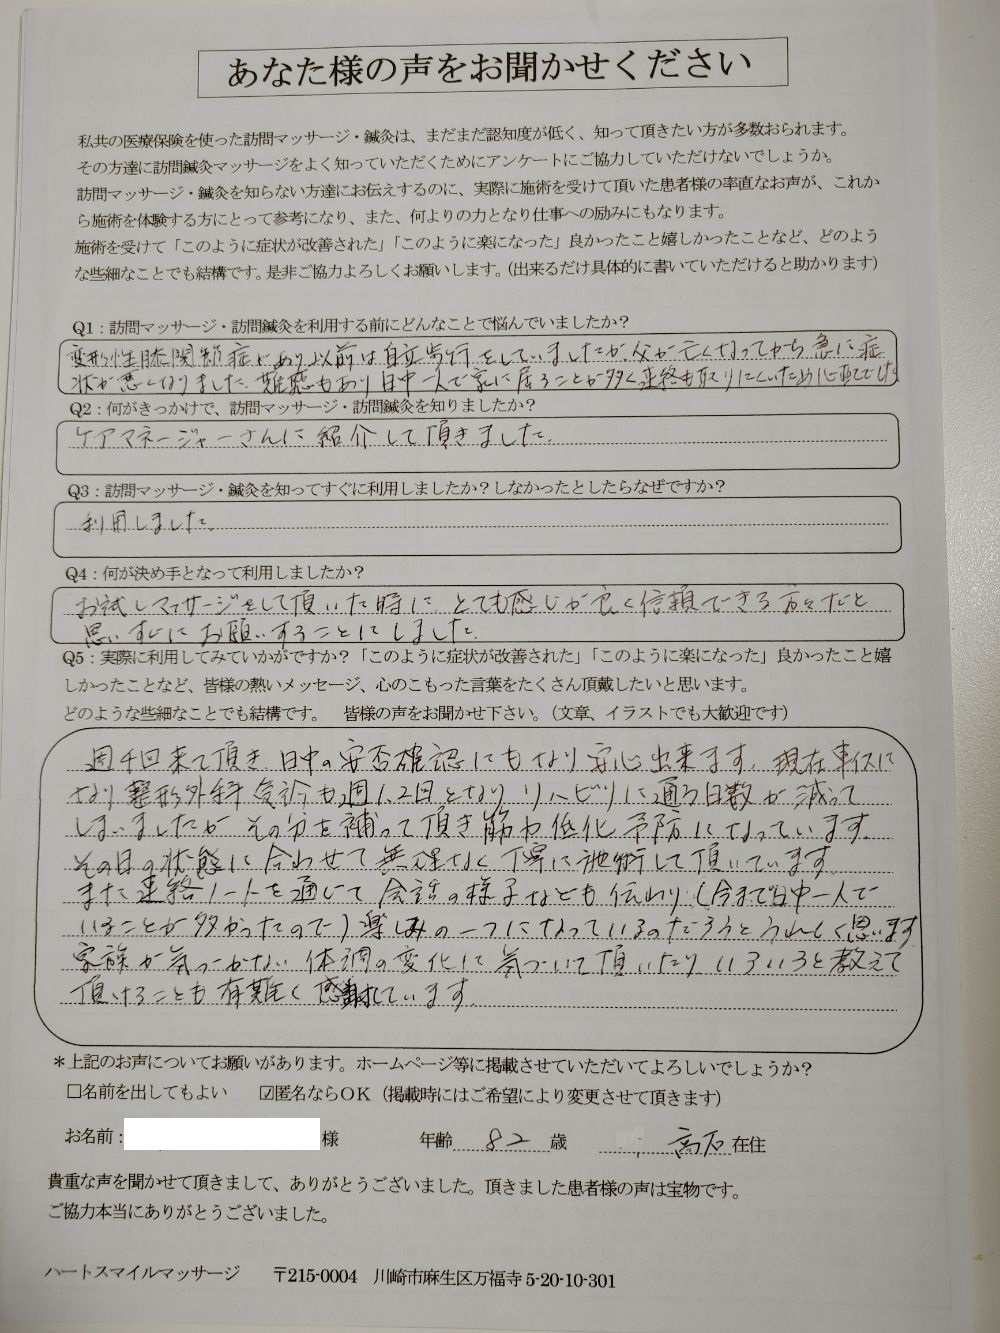 あなた様の声をお聞かせください
私共の医療保険を使った訪問マッサージ・鍼灸は、まだまだ認知度が低く、知って頂きたい方が多数おられます。
その方達に訪問鍼灸マッサージをよく知っていただくためにアンケートにご協力していただけないでしょうか。
訪問マッサージ・鍼灸を知らない方達にお伝えするのに、実際に施術を受けて頂いた患者様の率直なお声が、これか
ら施術を体験する方にとって参考になり、また、何よりの力となり仕事への励みにもなります。
施術を受けて「このように症状が改善された」「このように楽になった」良かったこと嬉しかったことなど、どのよう
な些細なことでも結構です。是非ご協力よろしくお願いします。（出来るだけ具体的に書いていただけると助かります）
Q1：訪問マッサージ・訪問鍼灸を利用する前にどんなことで悩んでいましたか？
変形性膝関節症であり以前は自立歩行をしていましたが、父が亡くなってから急に症
状が悪くなりました。難聴もあり日中一人で家に居ることが多く連絡も取りにくいため心配でした
Q2：何がきっかけで、訪問マッサージ・訪問鍼灸を知りましたか？
ケアマネージャーさんに紹介して頂きました。
Q3：訪問マッサージ・鍼灸を知ってすぐに利用しましたか？しなかったとしたらなぜですか？
利用しました。
Q4：何が決め手となって利用しましたか？
お試しマッサージをして頂いた時に とても感じが良く信頼できる方々だと
思いすぐにお願いすることにしました。
Q5：実際に利用してみていかがですか？「このように症状が改善された」「このように楽になった」良かったこと嬉
しかったことなど、皆様の熱いメッセージ、心のこもった言葉をたくさん頂戴したいと思います。
どのような些細なことでも結構です。 皆様の声をお聞かせ下さい。（文章、イラストでも大歓迎です）
週4回来て頂き 日中の安否確認にもなり安心出来ます。現在
なり整形外科 も週1、2回となり リハビリに通う日数が減って
しまいましたが その分を補って頂き筋力低化予防になっています。
その日の状態に合わせて無理なく丁寧に施術して頂いています。
また連絡ノートを通じて会話の様子なども伝わり（今まで日中一人で
いることが多かったので）楽しみの一つになっているのだろうとうれしく思います
家族が気づかない体調の変化に気づいて頂いたりいろいろと教えて
頂けることも有難く感謝しています。
＊上記のお声についてお願いがあります。ホームページ等に掲載させていただいてよろしいでしょうか？
□名前を出してもよい ☑匿名ならＯＫ（掲載時にはご希望により変更させて頂きます）
お名前： 様 年齢 82 歳 高石 在住
貴重な声を聞かせて頂きまして、ありがとうございました。頂きました患者様の声は宝物です。
ご協力本当にありがとうございました。
ハートスマイルマッサージ 〒215-0004 川崎市麻生区万福寺 5-20-10-301